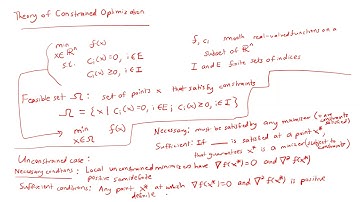 Theory of Constrained Optimization
min f(x)
x∈ℝⁿ
s.t. cᵢ(x)=0, i∈E
cᵢ(x)≥0, i∈I
f, cᵢ smooth real-valued functions on a
subset of ℝⁿ
I and E finite sets of indices
Feasible set Ω: set of points x that satisfy constraints
Ω = {x | cᵢ(x)=0, i∈E; cᵢ(x)≥0, i∈I}
min f(x)
x∈Ω
Necessary: must be satisfied by any minimizer
Sufficient: If is satisfied at a point x*,
that guarantees x* is a minimizer (subject to constraints)
Unconstrained case:
Necessary conditions: Local unconstrained minimizers have ∇f(x*)=0 and ∇²f(x*)
positive semidefinite
Sufficient conditions: Any point x* at which ∇f(x*)=0 and ∇²f(x*) is positive
definite